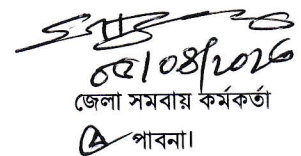 ০৫/০৪/২০২৬
জেলা সমবায় কর্মকর্তা
পাবনা।